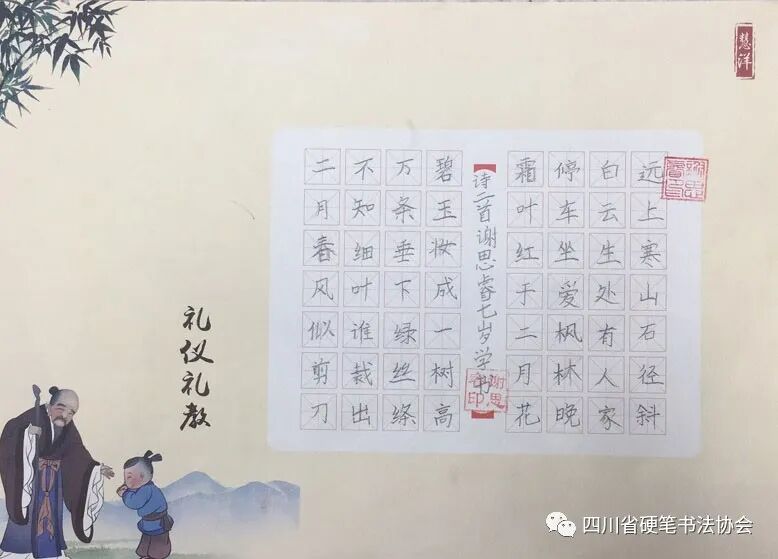 慧洋
谢思睿印
远上寒山石径斜
白云生处有人家
停车坐爱枫林晚
霜叶红于二月花
诗二首谢思睿七岁学书
谢思睿印
碧玉妆成一树高
万条垂下绿丝绦
不知细叶谁裁出
二月春风似剪刀
礼仪礼教
四川省硬笔书法协会